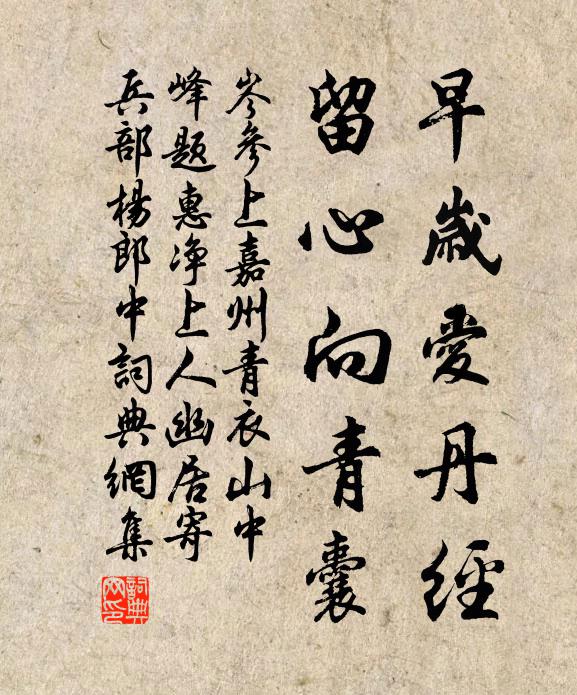 早歲愛丹經
留心向青囊
岑參上嘉州青衣山中
峰題惠淨上人幽居寄
兵部楊郎中詞典網集
詞典
网印